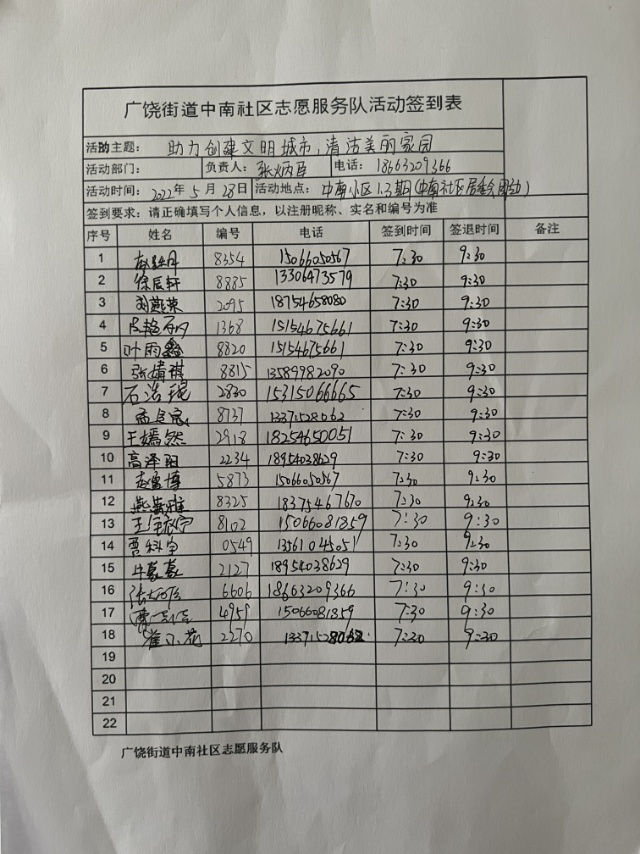 广饶街道中南社区志愿服务队活动签到表
活动主题: 助力创建文明城市,清洁美丽家园
活动部门: 负责人: 张炳臣 电话: 18663209366
活动时间: 2022年5月28日 活动地点: 中南小区1.3期(中南社区居委会团动)
签到要求: 请正确填写个人信息, 以注册昵称、实名和编号为准
序号 姓名 编号 电话 签到时间 签退时间 备注
1 8354 15066050567 7:30 9:30
2 徐辰轩 8885 13306473579 7:30 9:30
3 刘燕荣 2095 18754658080 7:30 9:30
4 1368 15154675661 7:30 9:30
5 叶雨鑫 8820 15154675661 7:30 9:30
6 张婧祺 8815 13589982090 7:30 9:30
7 石浩琨 2830 15315066665 7:30 9:30
8 8737 13371528062 7:30 9:30
9 王嫣然 2918 18254650051 7:30 9:30
10 高泽阳 2234 18954038629 7:30 9:30
11 5873 15066050567 7:30 9:30
12 8325 18375467670 7:30 9:30
13 8102 15066081859 7:30 9:30
14 贾科宇 0549 13561045051 7:30 9:30
15 牛嘉嘉 2127 18954038629 7:30 9:30
16 6606 18663209366 7:30 9:30
17 4959 15066081859 7:30 9:30
18 崔小花 2270 13371528062 7:30 9:30
19
20
21
22
广饶街道中南社区志愿服务队